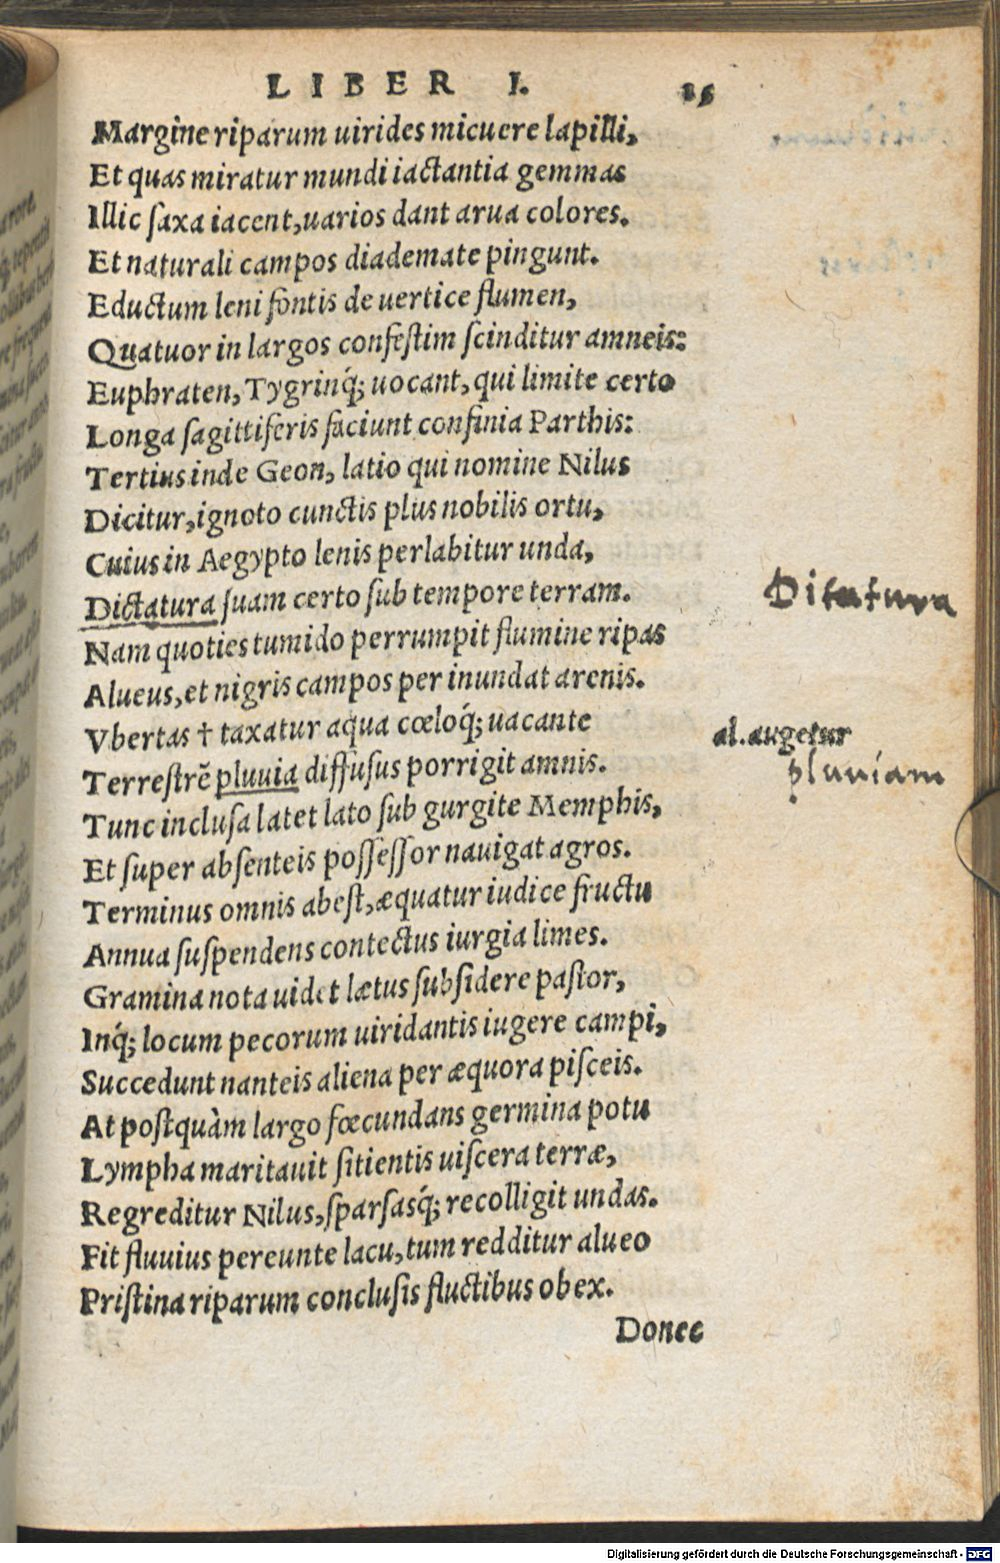 LIBER I. 15
Margine riparum uirides micuere lapilli,
Et quas miratur mundi iactantia gemmas
Illic ſaxa iacent, uarios dant arua colores.
Et naturali campos diademate pingunt.
Eductum leni fontis de uertice flumen,
Quatuor in largos confeſtim ſcinditur amneis:
Euphraten, Tygrinq́; uocant, qui limite certo
Longa ſagittiferis faciunt confinia Parthis:
Tertius inde Geon, latio qui nomine Nilus
Dicitur, ignoto cunctis plus nobilis ortu,
Cuius in Aegypto lenis perlabitur unda,
Dictatura ſuam certo ſub tempore terram. Ditatura
Nam quoties tumido perrumpit flumine ripas
Alueus, et nigris campos per inundat arenis.
Vbertas † taxatur aqua cœloq́; uacante al. augetur
Terreſtrẽ pluuia diffuſus porrigit amnis. pluuiam
Tunc incluſa latet lato ſub gurgite Memphis,
Et ſuper abſenteis poſſeſſor nauigat agros.
Terminus omnis abeſt, æquatur iudice fructu
Annua ſuſpendens contectus iurgia limes.
Gramina nota uidet lætus ſubſidere paſtor,
Inq́; locum pecorum uiridantis iugere campi,
Succedunt nanteis aliena per æquora piſceis.
At poſtquàm largo fœcundans germina potu
Lympha maritauit ſitientis uiſcera terræ,
Regreditur Nilus, ſparſasq́; recolligit undas.
Fit fluuius pereunte lacu, tum redditur alueo
Priſtina riparum concluſis fluctibus obex.
Donec
Digitalisierung gefördert durch die Deutsche Forschungsgemeinschaft - DFG